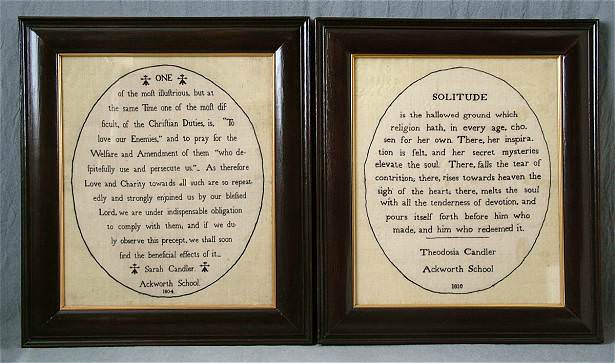 ONE
of the moſt illuſtrious, but at
the same Time one of the moſt dif
ficult, of the Chriſtian Duties, is, "To
love our Enemies," and to pray for the
Welfare and Amendment of them "who de-
ſpitefully use and persecute us."_ As therefore
Love and Charity towards all such are so repeat-
edly and strongly enjoined us by our bleſſed
Lord, we are under indispensable obligation
to comply with them, and if we du-
ly observe this precept, we shall soon
find the beneficial effects of it._
Sarah Candler.
Ackworth School.
1804.
SOLITUDE
is the hallowed ground which
religion hath, in every age, cho-
sen for her own. There, her inspira-
tion is felt, and her secret mysteries
elevate the soul. There, falls the tear of
contrition; there, rises towards heaven the
sigh of the heart; there, melts the soul
with all the tenderness of devotion, and
pours itself forth before him who
made, and him who redeemed it.
Theodosia Candler
Ackworth School
1810